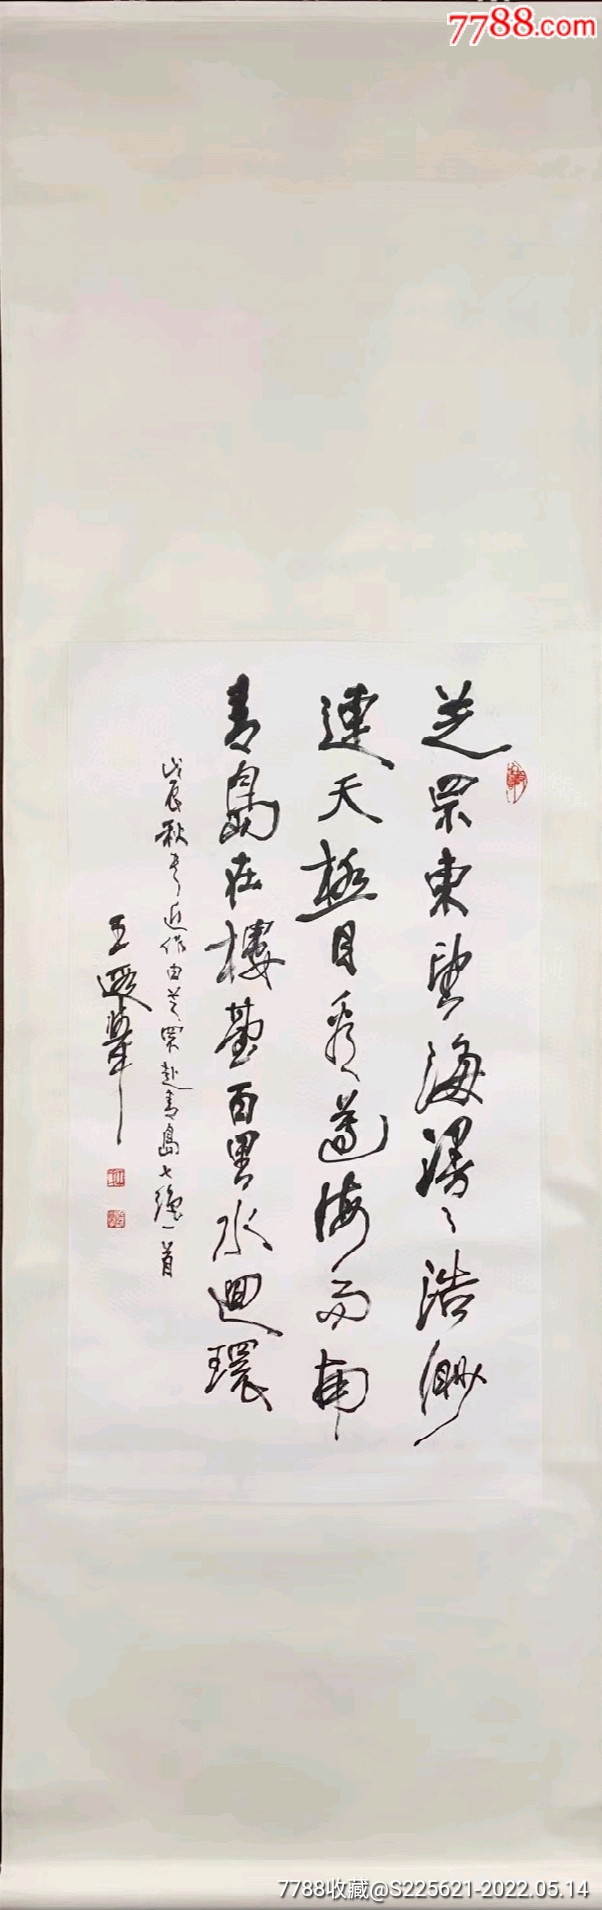 7788.com
芝罘東望海漫々浩渺
連天極目看遵海而南
青島在樓臺百里水迴環
戊辰秋書近作由芝罘赴青島七絕一首
王遐舉
7788收藏@S225621-2022.05.14